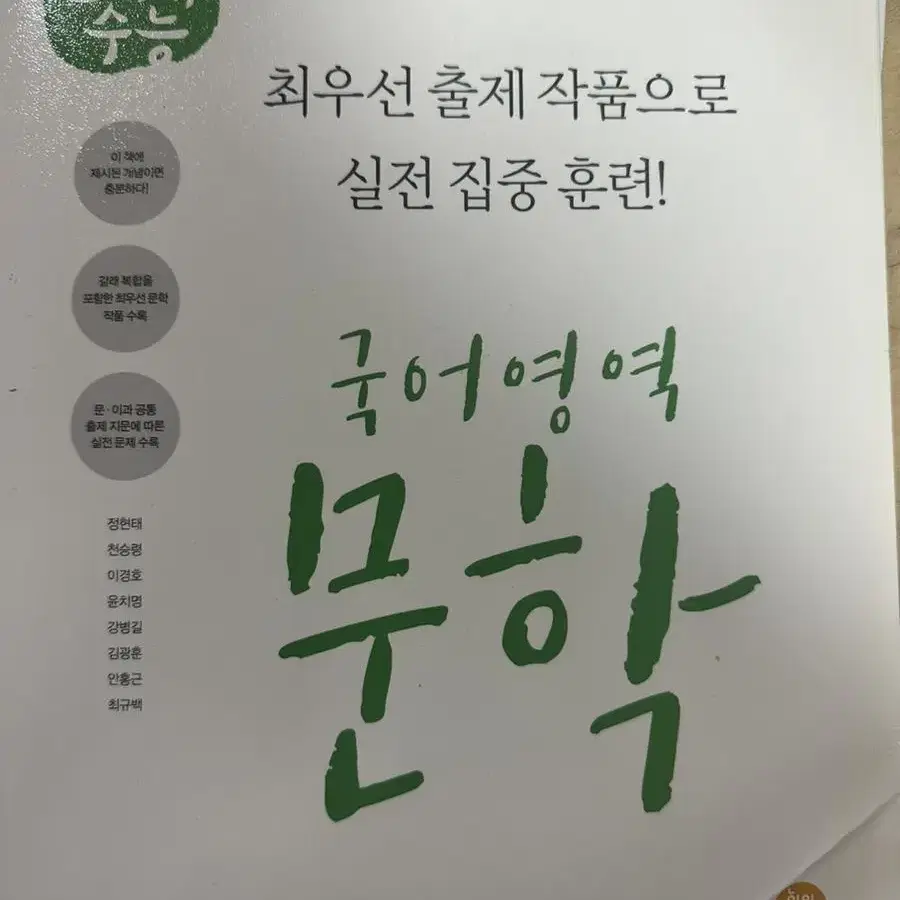 수능
최우선 출제 작품으로
실전 집중 훈련!
이 책에
제시된 개념이면
충분하다!
갈래 복합을
포함한 최우선 문학
작품 수록
문·이과 공통
출제 지문에 따른
실전 문제 수록
국어영역
문학
정현태
천승령
이경호
윤치명
강병길
김광훈
안홍근
최규백